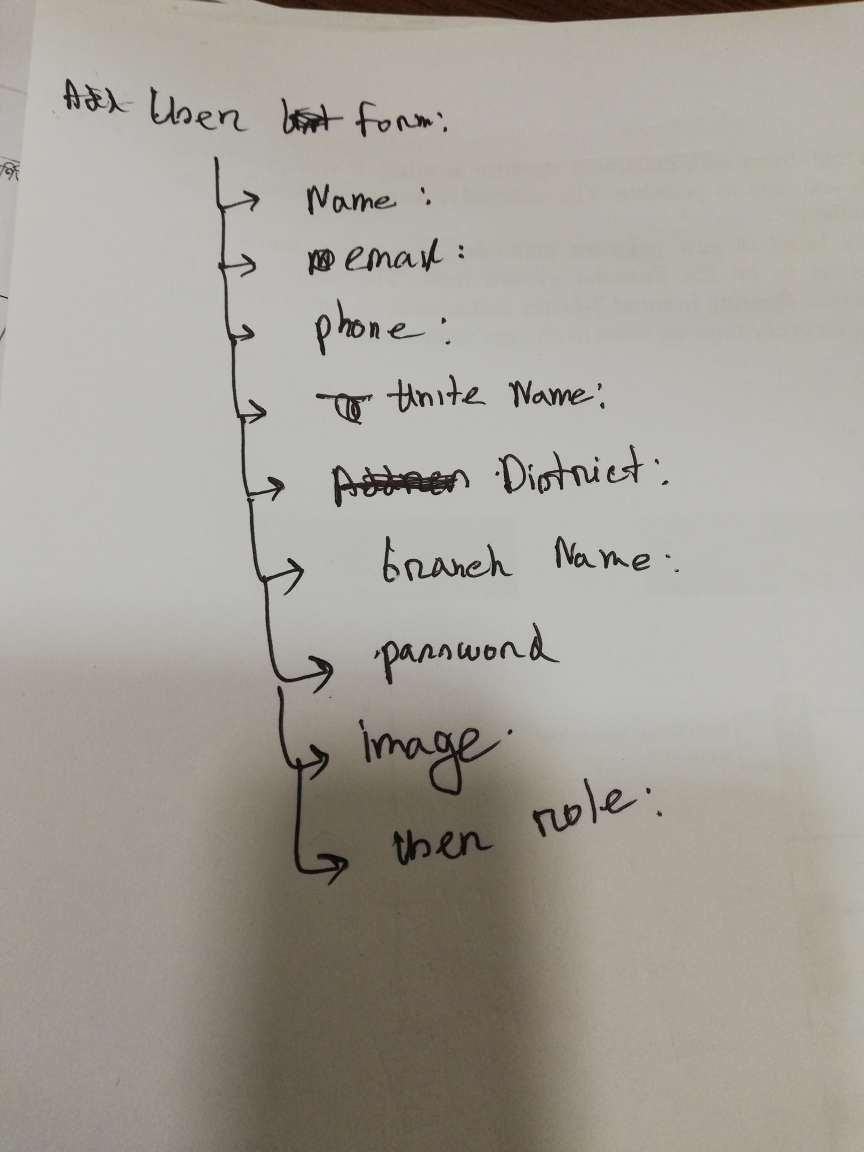 Add User form:
Name :
email :
phone :
Unite Name:
District :
branch Name :
password
image.
user role :